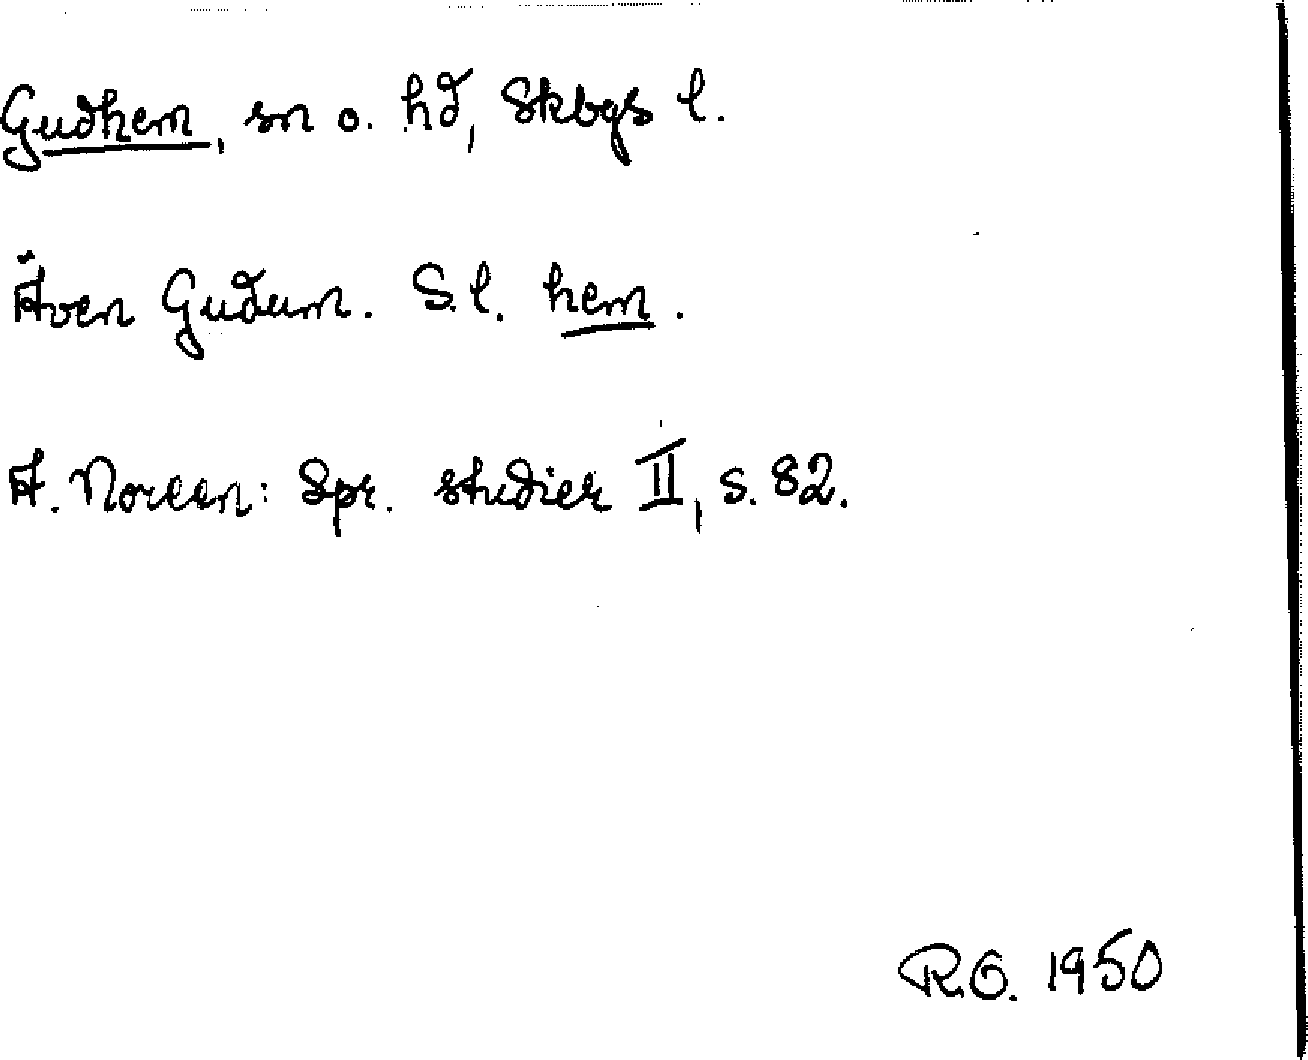 Gudhem, sn o. hd, Skbgs l.
Även Gudum. S.l. hem.
A. Noreen: Spr. studier II, s. 82.
R.O. 1950